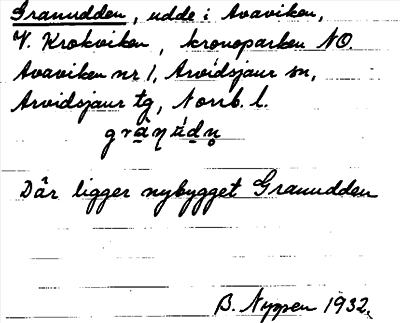 Granudden, udde i Avaviken,
V. Krokviken, kronoparken NO.
Avaviken nr 1, Arvidsjaur sn,
Arvidsjaur tg, Norrb. l.
Där ligger nybygget Granudden
B. Nyppen 1932.